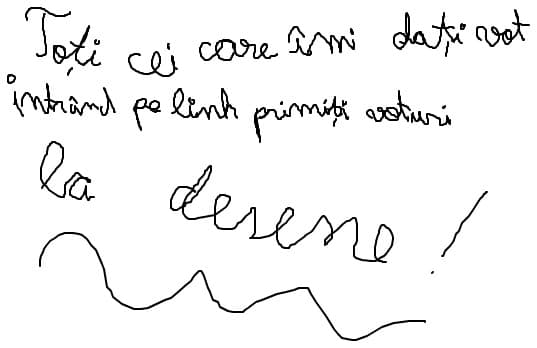 Toți cei care îmi dați vot
intrând pe link primiți voturi
la desene!